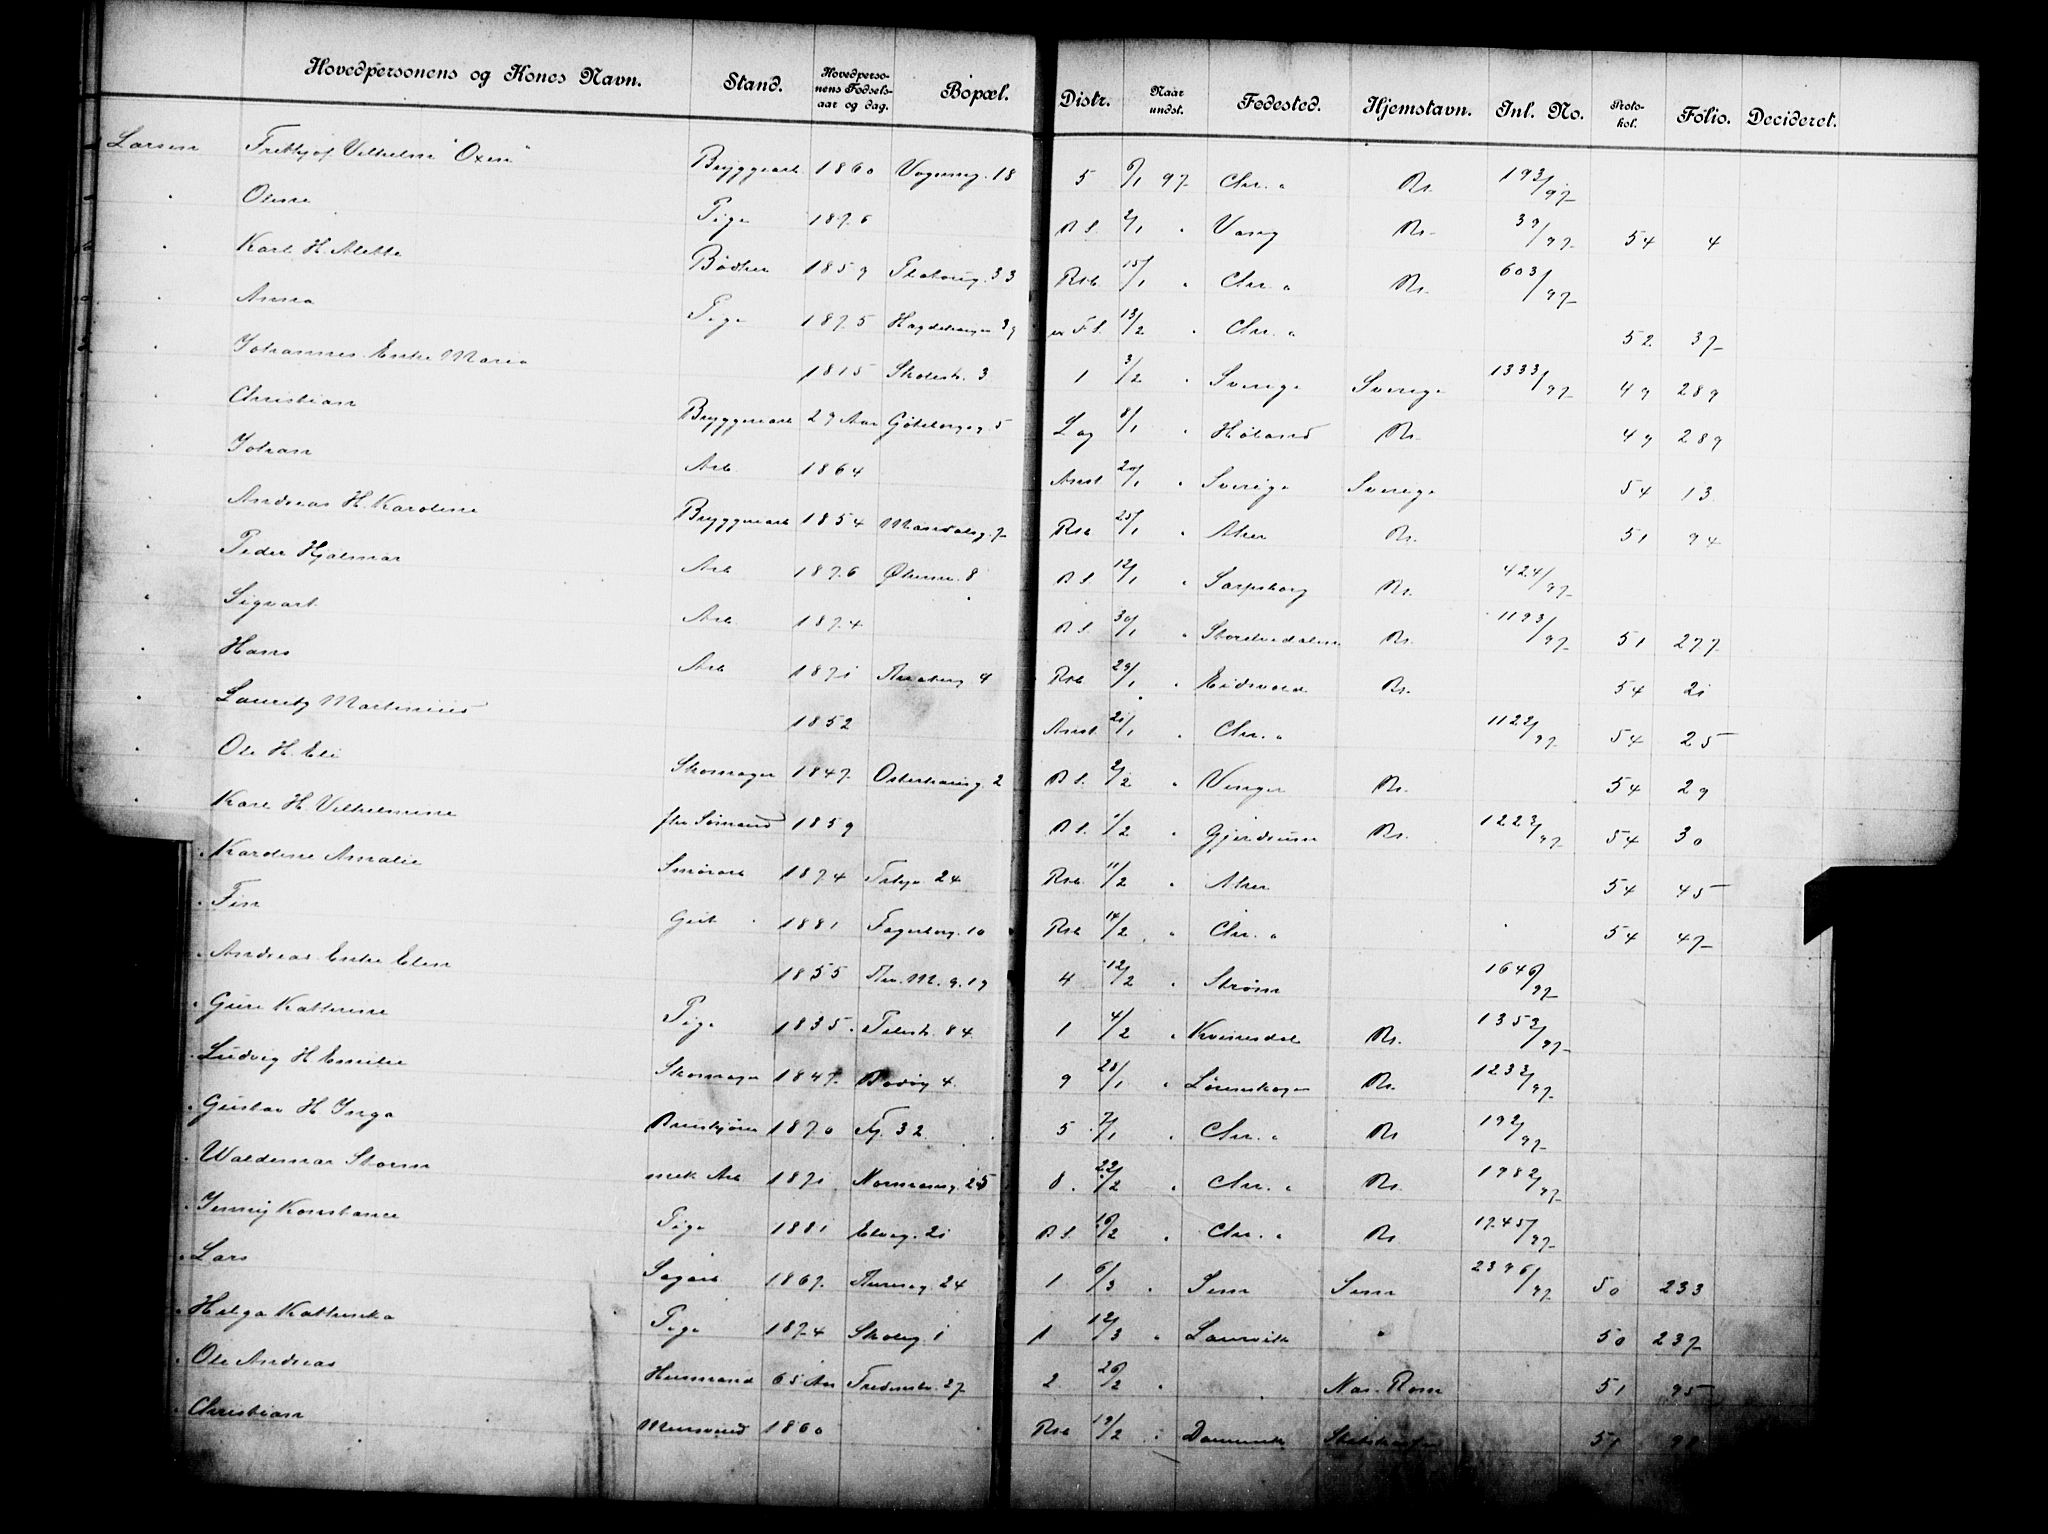 Hovedpersonens og Kones Navn. Stand. Hovedpersonens Fødselsaar og dag. Bopæl. Distr. Naar undst. Fødested. Hjemstavn. Inl. No. Protokol. Folio. Decideret.
Larsen Frithjof Vilhelm "Oxen" Bryggearb 1860 Vognmg. 18 5 6/1 97 Chr. " Kr. 193/97
" Oline Pige 1876 B S. 2/1 " Vang Kr. 39/97 54 4
" Karl H. Alette Bødker 1859 33 Rsb 15/1 " Chr. " Kr. 603/97
" Anna Pige 1875 39 13/2 " Chr. " 52 37
" Johannes Enke Maria 1815 Skolest. 3 1 3/2 " Sverige Sverige 1333/97 49 289
Christian Bryggearb 29 Aar Göteborgg 5 Lag 8/1 " Høland Kr. 49 289
" Johan Arb 1864 Anst 20/1 " Sverige Sverige 54 13
Andreas H. Karoline Bryggearb 1854 Mandalsg. 7 Rsb 25/1 " Aker Kr. 51 94
" Peder Hjalmar Arb 1876 8 B S. 12/1 " Sarpsborg Kr. 424/97
" Sigvart Arb 1874 B S. 30/1 " Storelvedalen Kr. 1193/97 51 277
Hans Arb 1871 4 Rsb 29/1 " Eidsvold Kr. 54 21
" Lauritz Martinius 1852 Anst. 21/1 " Chr. " 1122/97 54 25
" Ole H. Eli Skomager 1847 Osterhausg. 2 B S. 2/2 " Vinger Kr. 54 29
" Karl H. Vilhelmine fhv Sømand 1859 B S. 1/2 " Gjerdrum Kr. 1223/97 54 30
" Karoline Amalie 1874 24 Rsb. 11/2 " Aker 54 45
" Fin Gut 1881 Fagerborg. 10 Rsb 14/2 " Chr. " 54 47
" Andreas Enke Elen 1855 Thv. M. g. 19 4 12/2 " Strøm 1646/97
" Guri Kathrine Pige 1835 84 1 4/2 " Kvinesdal Kr. 1353/97
" Ludvig H. Emilie Skomager 1847 Bodøg 4. 9 28/1 " Lørenskogen Kr. 1233/97
" Gustav H. Inga 1870 32 5 7/1 " Chr. " Kr 192/97
" Waldemar Storm mek Arb 1871 Normansg. 25 8. 22/2 " Chr. " Kr. 1982/97
" Jenny Konstance Pige 1881 Elveg. 21 B S. 16/2 " Chr. " Kr. 1745/97
" Lars Sagarb 1867 Thereseg. 24 1 6/3 " Sem Sem 2396/97 50 233
" Helga Kathinka Pige 1874 Skoleg. 1 1 12/3 " Laurvik " 50 237
" Ole Andreas Husmand 65 Aar Fredensb. 27 2 26/2 " " Næs. Rom 51 95
" Christian Murmand 1860 Rsb 19/2 " Danmark 51 98